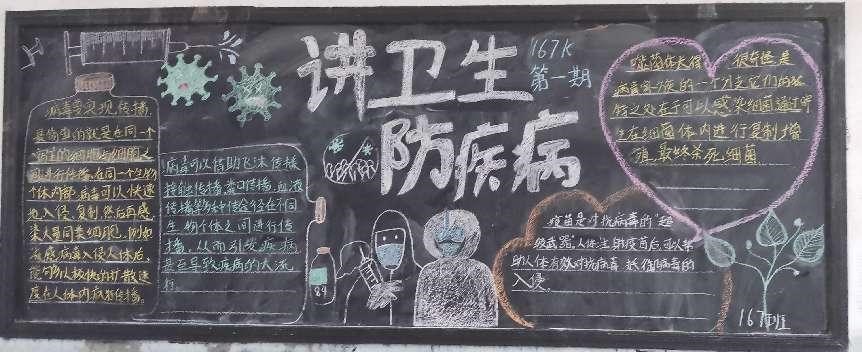 讲卫生
防疾病
167K
第一期
病毒要实现传播
最典型的就是在同一个
宿主的细胞与细胞之
间进行传播,在同一个生物
个体内部,病毒可以快速
地入侵、复制,然后再感
染大量同类细胞,例如
流感病毒入侵人体后,
能够以极快的扩散速
度在人体内疯狂传播。
病毒可以借助飞沫传播
接触传播,粪口传播,血液
传播等多种传播途径在不同
生物个体之间进行传
播,从而引发疾病
甚至导致疾病的大流
行。
84
很奇怪是
病毒家族的一个分支它们的独
特之处在于可以感染细菌通过寄
生在细菌体内进行复制增
殖,最终杀死细菌。
疫苗是对抗病毒的"超
级武器"人体注射疫苗后,可以帮
助人体有效对抗病毒 抵御病毒的
入侵。
167班